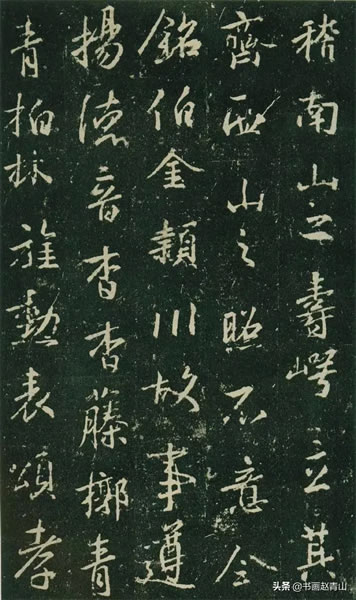 稽南山之壽崿立其
齊西山之照不意令
銘伯金頴川故事遵
揚德音杳杳藤槨青
青柏林旌勳表頌孝
头条 @书画赵青山